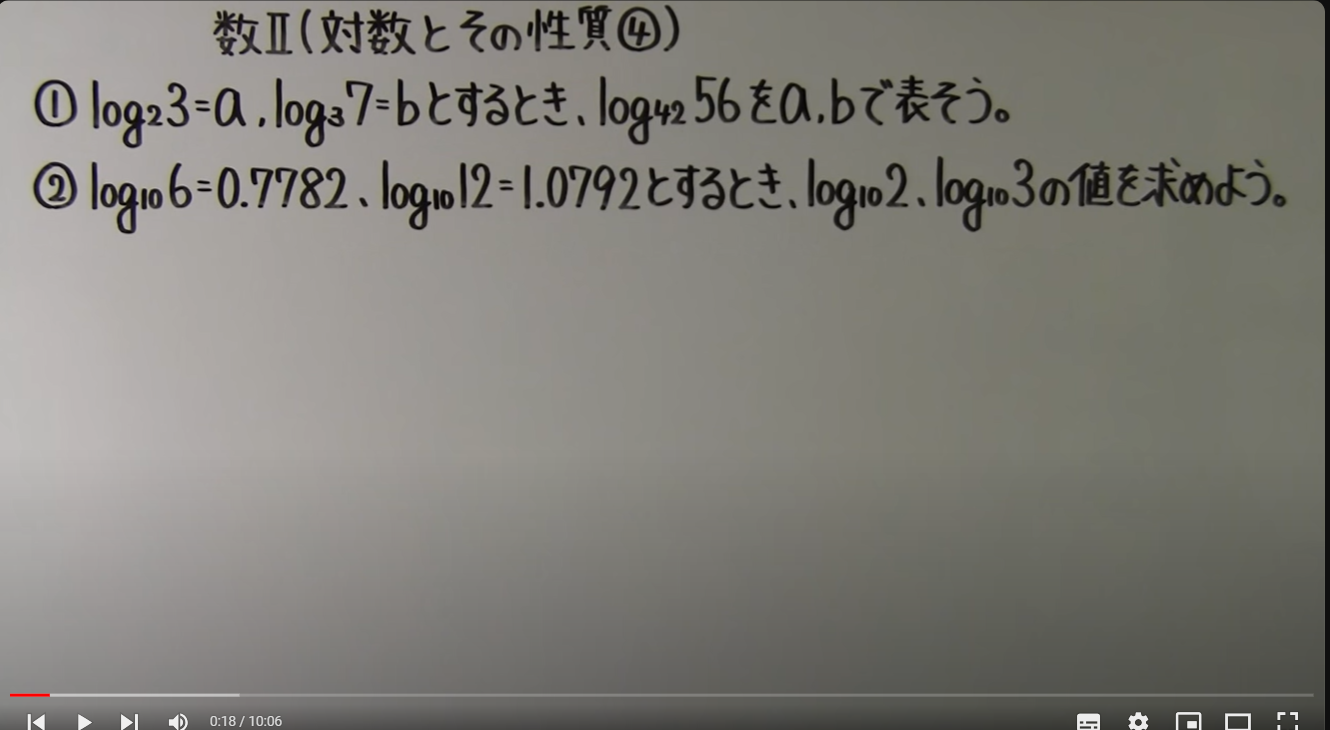 数Ⅱ(対数とその性質④)
① log₂3=a, log₃7=bとするとき、log₄₂56をa,bで表そう。
② log₁₀6=0.7782、log₁₀12=1.0792とするとき、log₁₀2、log₁₀3の値を求めよう。
0:18 / 10:06